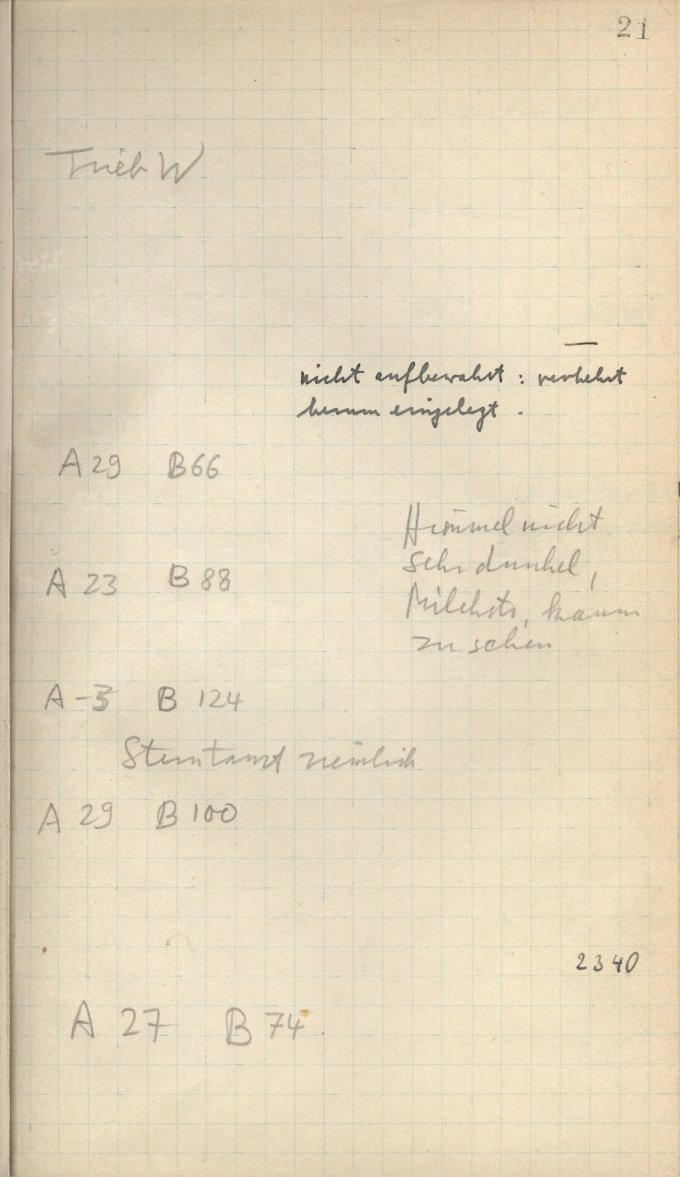 21
Trieb W
nicht aufbewahrt : verkehrt
herum eingelegt .
A 29 B 66
Himmel nicht
sehr dunkel,
Milchstr, kaum
zu sehen
A 23 B 88
A -3 B 124
Stern tanzt ziemlich
A 29 B 100
2340
A 27 B 74